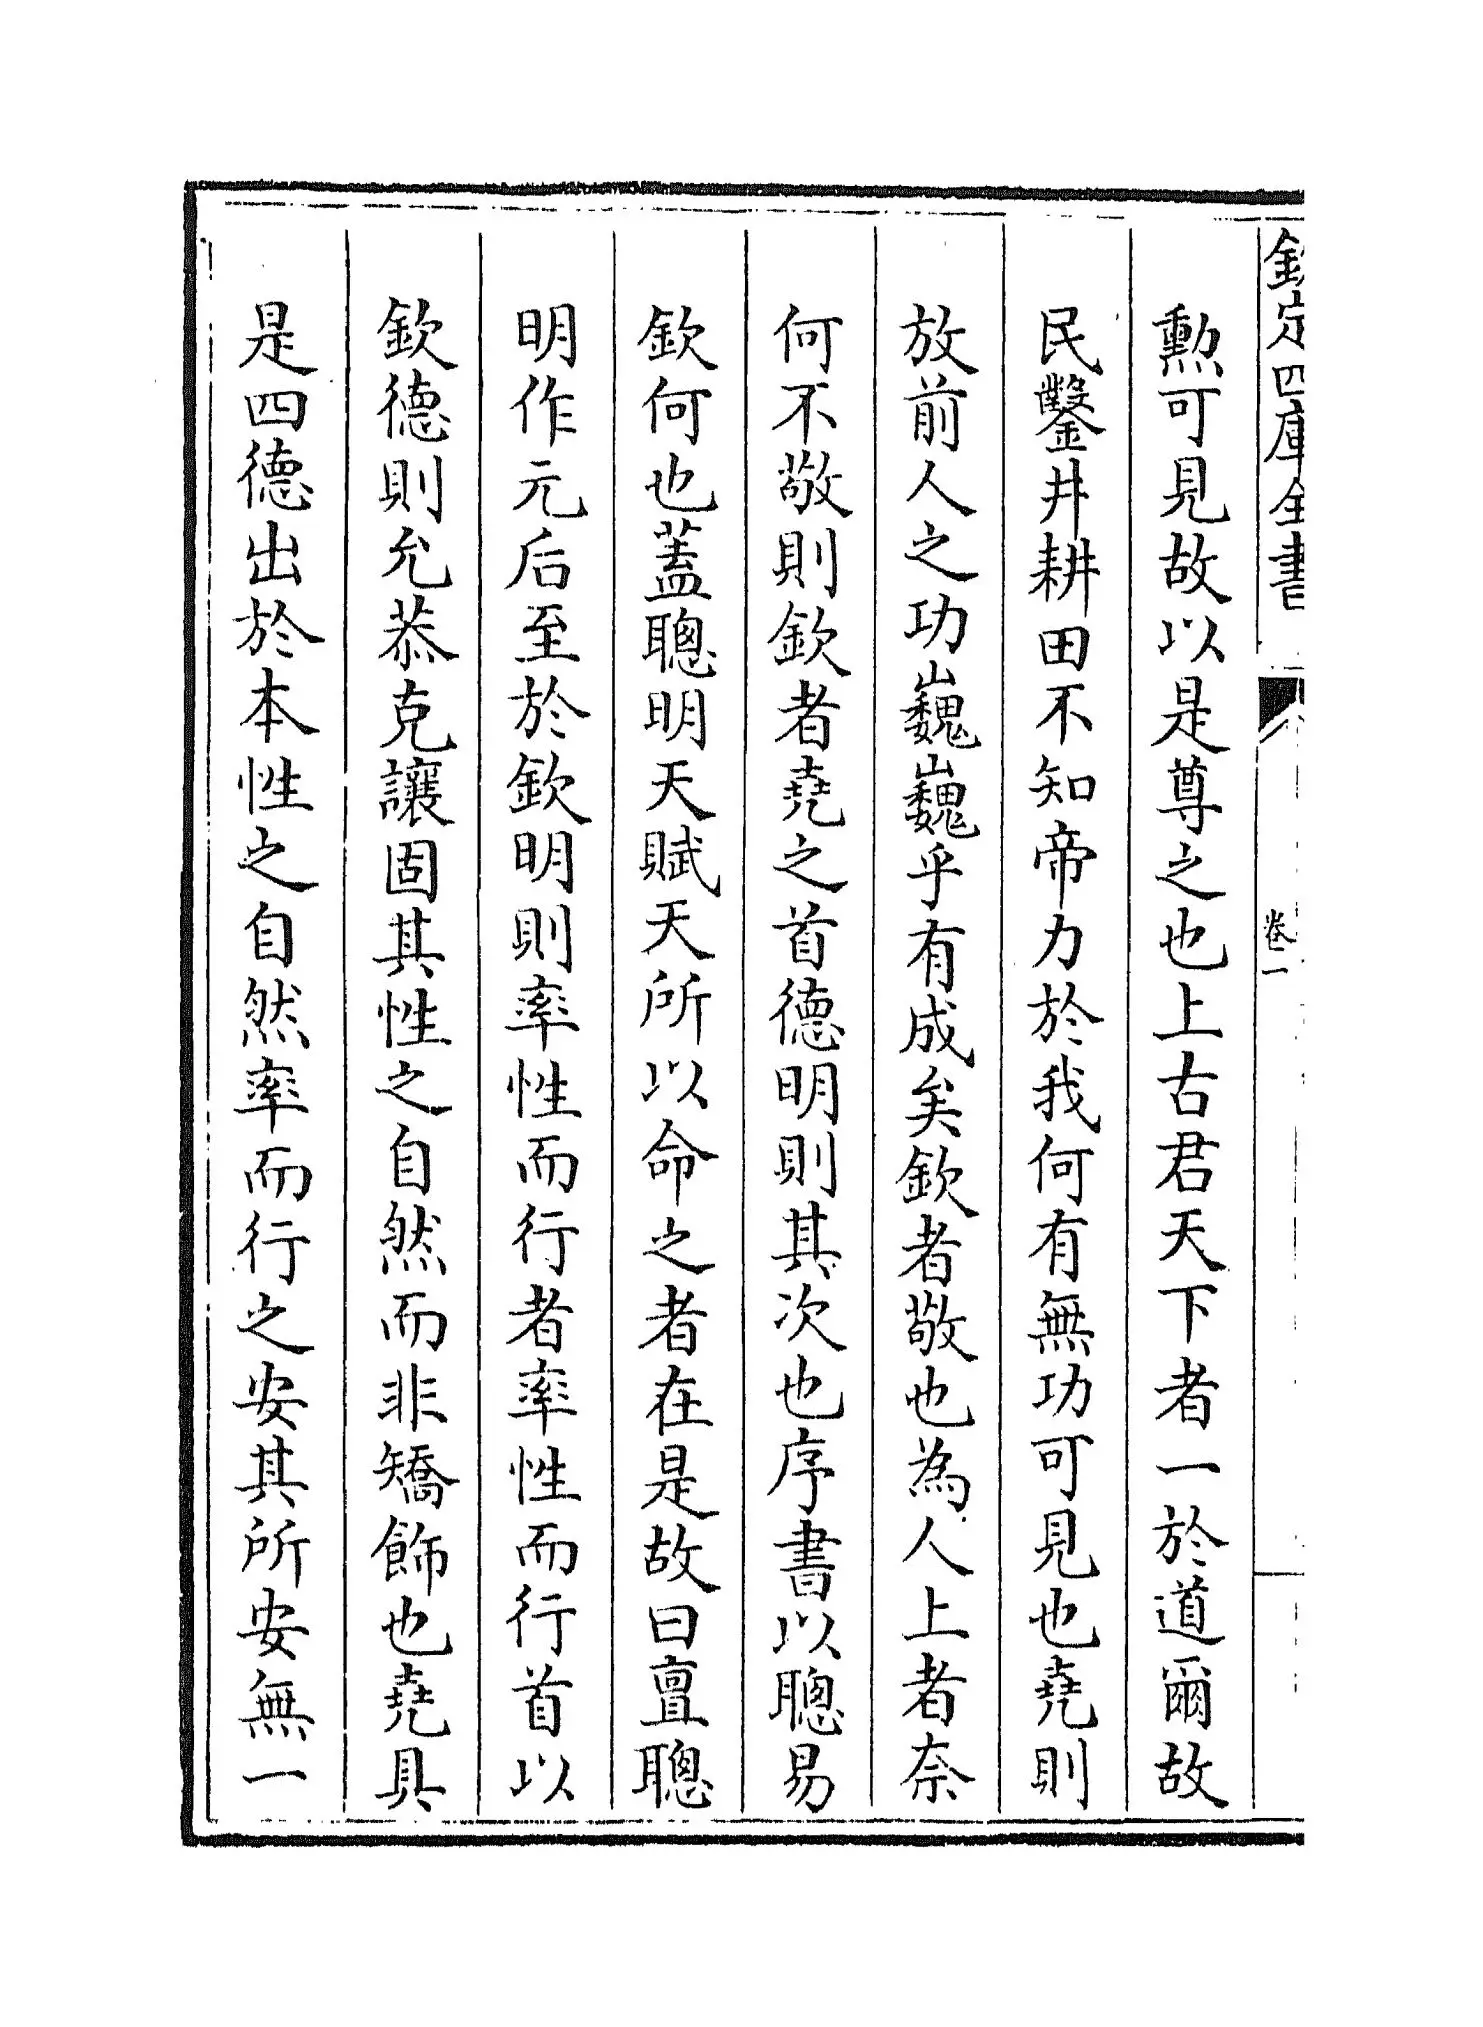 欽定四庫全書
卷一
勲可見故以是尊之也上古君天下者一於道爾故
民鑿井耕田不知帝力於我何有無功可見也堯則
放前人之功巍巍乎有成矣欽者敬也為人上者奈
何不敬則欽者堯之首德明則其次也序書以聰易
欽何也蓋聰明天賦天所以命之者在是故曰亶聰
明作元后至於欽明則率性而行者率性而行首以
欽德則允恭克讓固其性之自然而非矯飾也堯具
是四德出於本性之自然率而行之安其所安無一